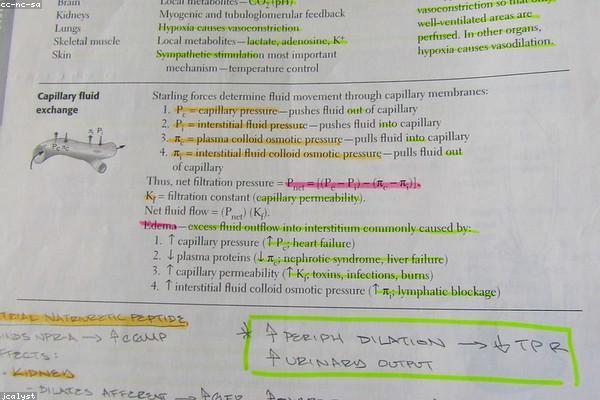 cc-nc-sa
Brain Local metabolites—CO₂ (pH) vasoconstriction so that only
Kidneys Myogenic and tubuloglomerular feedback well-ventilated areas are
Lungs Hypoxia causes vasoconstriction perfused. In other organs,
Skeletal muscle Local metabolites—lactate, adenosine, K⁺ hypoxia causes vasodilation.
Skin Sympathetic stimulation most important
mechanism—temperature control
Capillary fluid exchange
Starling forces determine fluid movement through capillary membranes:
1. Pc = capillary pressure—pushes fluid out of capillary
2. Pi = interstitial fluid pressure—pushes fluid into capillary
3. πc = plasma colloid osmotic pressure—pulls fluid into capillary
4. πi = interstitial fluid colloid osmotic pressure—pulls fluid out
of capillary
Thus, net filtration pressure = Pnet = [(Pc − Pi) − (πc − πi)].
Kf = filtration constant (capillary permeability).
Net fluid flow = (Pnet) (Kf).
Edema—excess fluid outflow into interstitium commonly caused by:
1. ↑ capillary pressure (↑ Pc; heart failure)
2. ↓ plasma proteins (↓ πc; nephrotic syndrome, liver failure)
3. ↑ capillary permeability (↑ Kf; toxins, infections, burns)
4. ↑ interstitial fluid colloid osmotic pressure (↑ πi; lymphatic blockage)
πi Pi
Pc πc
TRIAL NATRIURETIC PEPTIDE
INDS NPR-A → ↑ cGMP
FFECTS:
- KIDNEY
- DILATES AFFERENT → ↑ GFR
* ↑ PERIPH DILATION → ↓ TPR
↑ URINARY OUTPUT
jcalyst